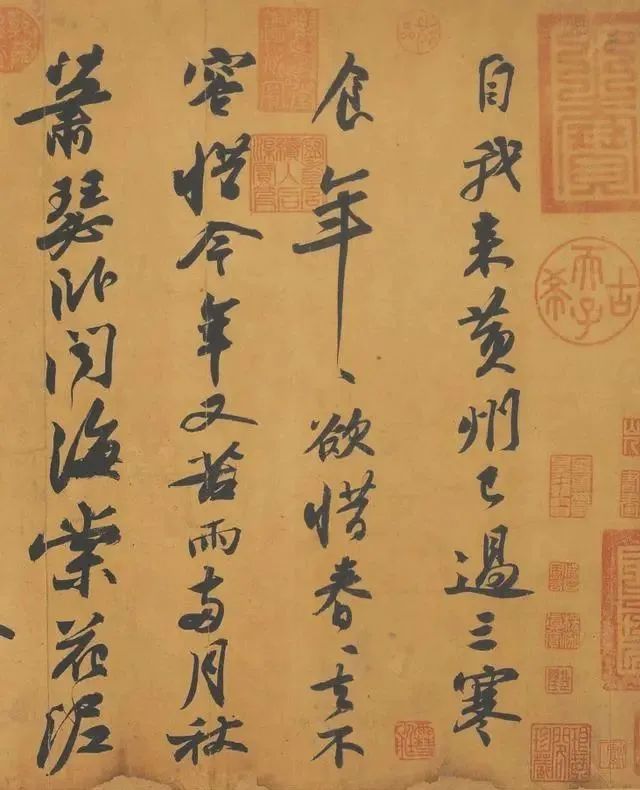 古希天子
自我来黄州已過三寒
食年〻欲惜春〻去不
容惜今年又苦雨兩月秋
蕭瑟卧聞海棠花泥